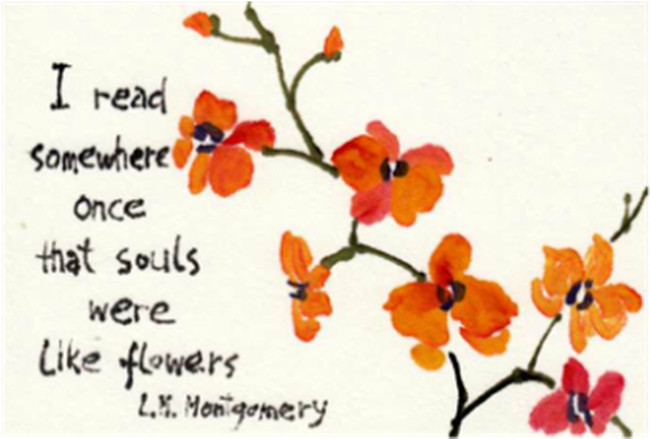 I read
somewhere
once
that souls
were
Like flowers
L.M. Montgomery